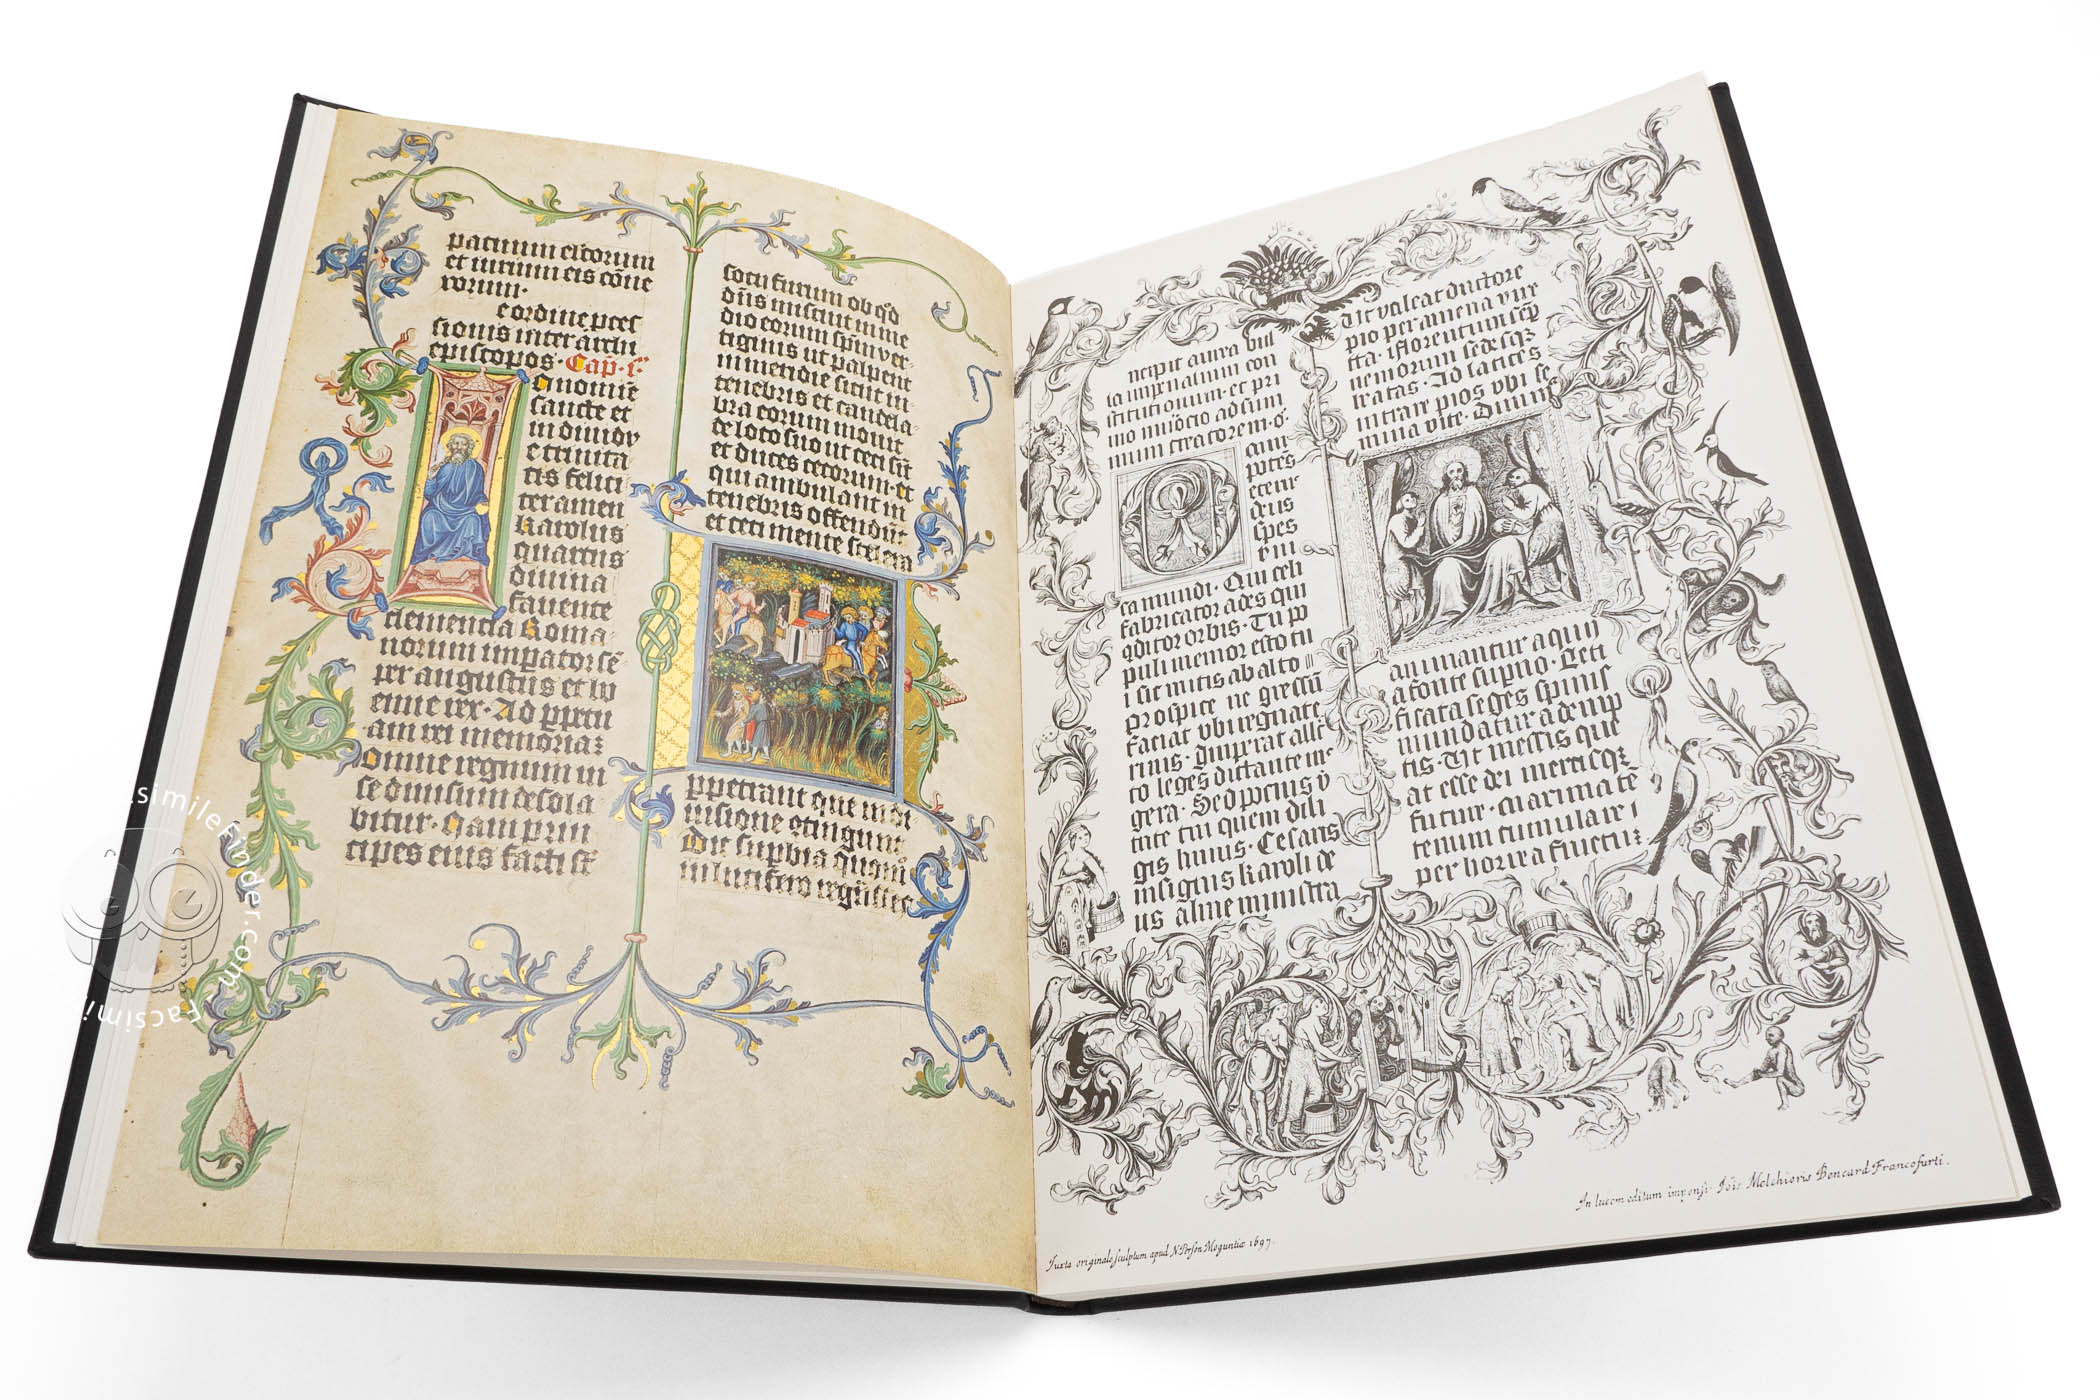 et mirium eis cōue
rorum·
e ordine pces
sionis inter archi
episcopos· Cap· i·
In nomine
sancte et
indiuidv
e trinita
tis felici
ter amen
Karolus
quartus
diuina
fauente
clementia Roma
norum impator sē
per augustus et bo
emie rex· Ad ppetu
am rei memoriaz
Omne regnum in
se diuisum desola
bitur· Nam prin
cipes eius facti st
socii furum ob qd
dns miscuit in me
dio eorum spm ver
tiginis ut palpent
in meridie sicut in
tenebris et candela
bra eorum mouit
de loco suo ut ceci sīt
et duces cecorum· et
qui ambulant in
tenebris offendūt
et ceci mente scelera
ppetrant que in di
uisione otingunt
Dic supbia quomō
in lucifero regnasses
ncipit aurea bul
la imperialium con
stitutionum· et pri
mo inuocio ad sum
mum creatorem· 6·
mni
potēs
eterne
deus
spes
vni
ca mundi· Qui celi
fabricator ades qui
qditor orbis· Tu pp
puli memor esto tu
i sic mitis ab alto
prospice ne gressū
faciat vbi regnat e
rinis· Imperat alle
cto leges dictante me
gera· Sed potius v
tute tui quem dili
gis huius· Cesaris
insignis karoli de
us alme ministra
Ut valeat ductore
pio per amena vire
ta· iflorentum semp
nemorum sedesqz
beatas· Ad latices
intrare pios vbi se
mina vite· Diuin
animantur aquis
a fonte supno· Leti
ficata seges spinis
mundatur ademp
tis· Ut messis que
at esse dei mercisqz
future· maxima cē
tenum cumulare i
per horrea fructuz·
Juxta originale sculptum apud N Person Moguntiæ 1697·
In lucem editum impensi· Jōis Melchioris Bencard Francofurti·
FacsimileFinder.com